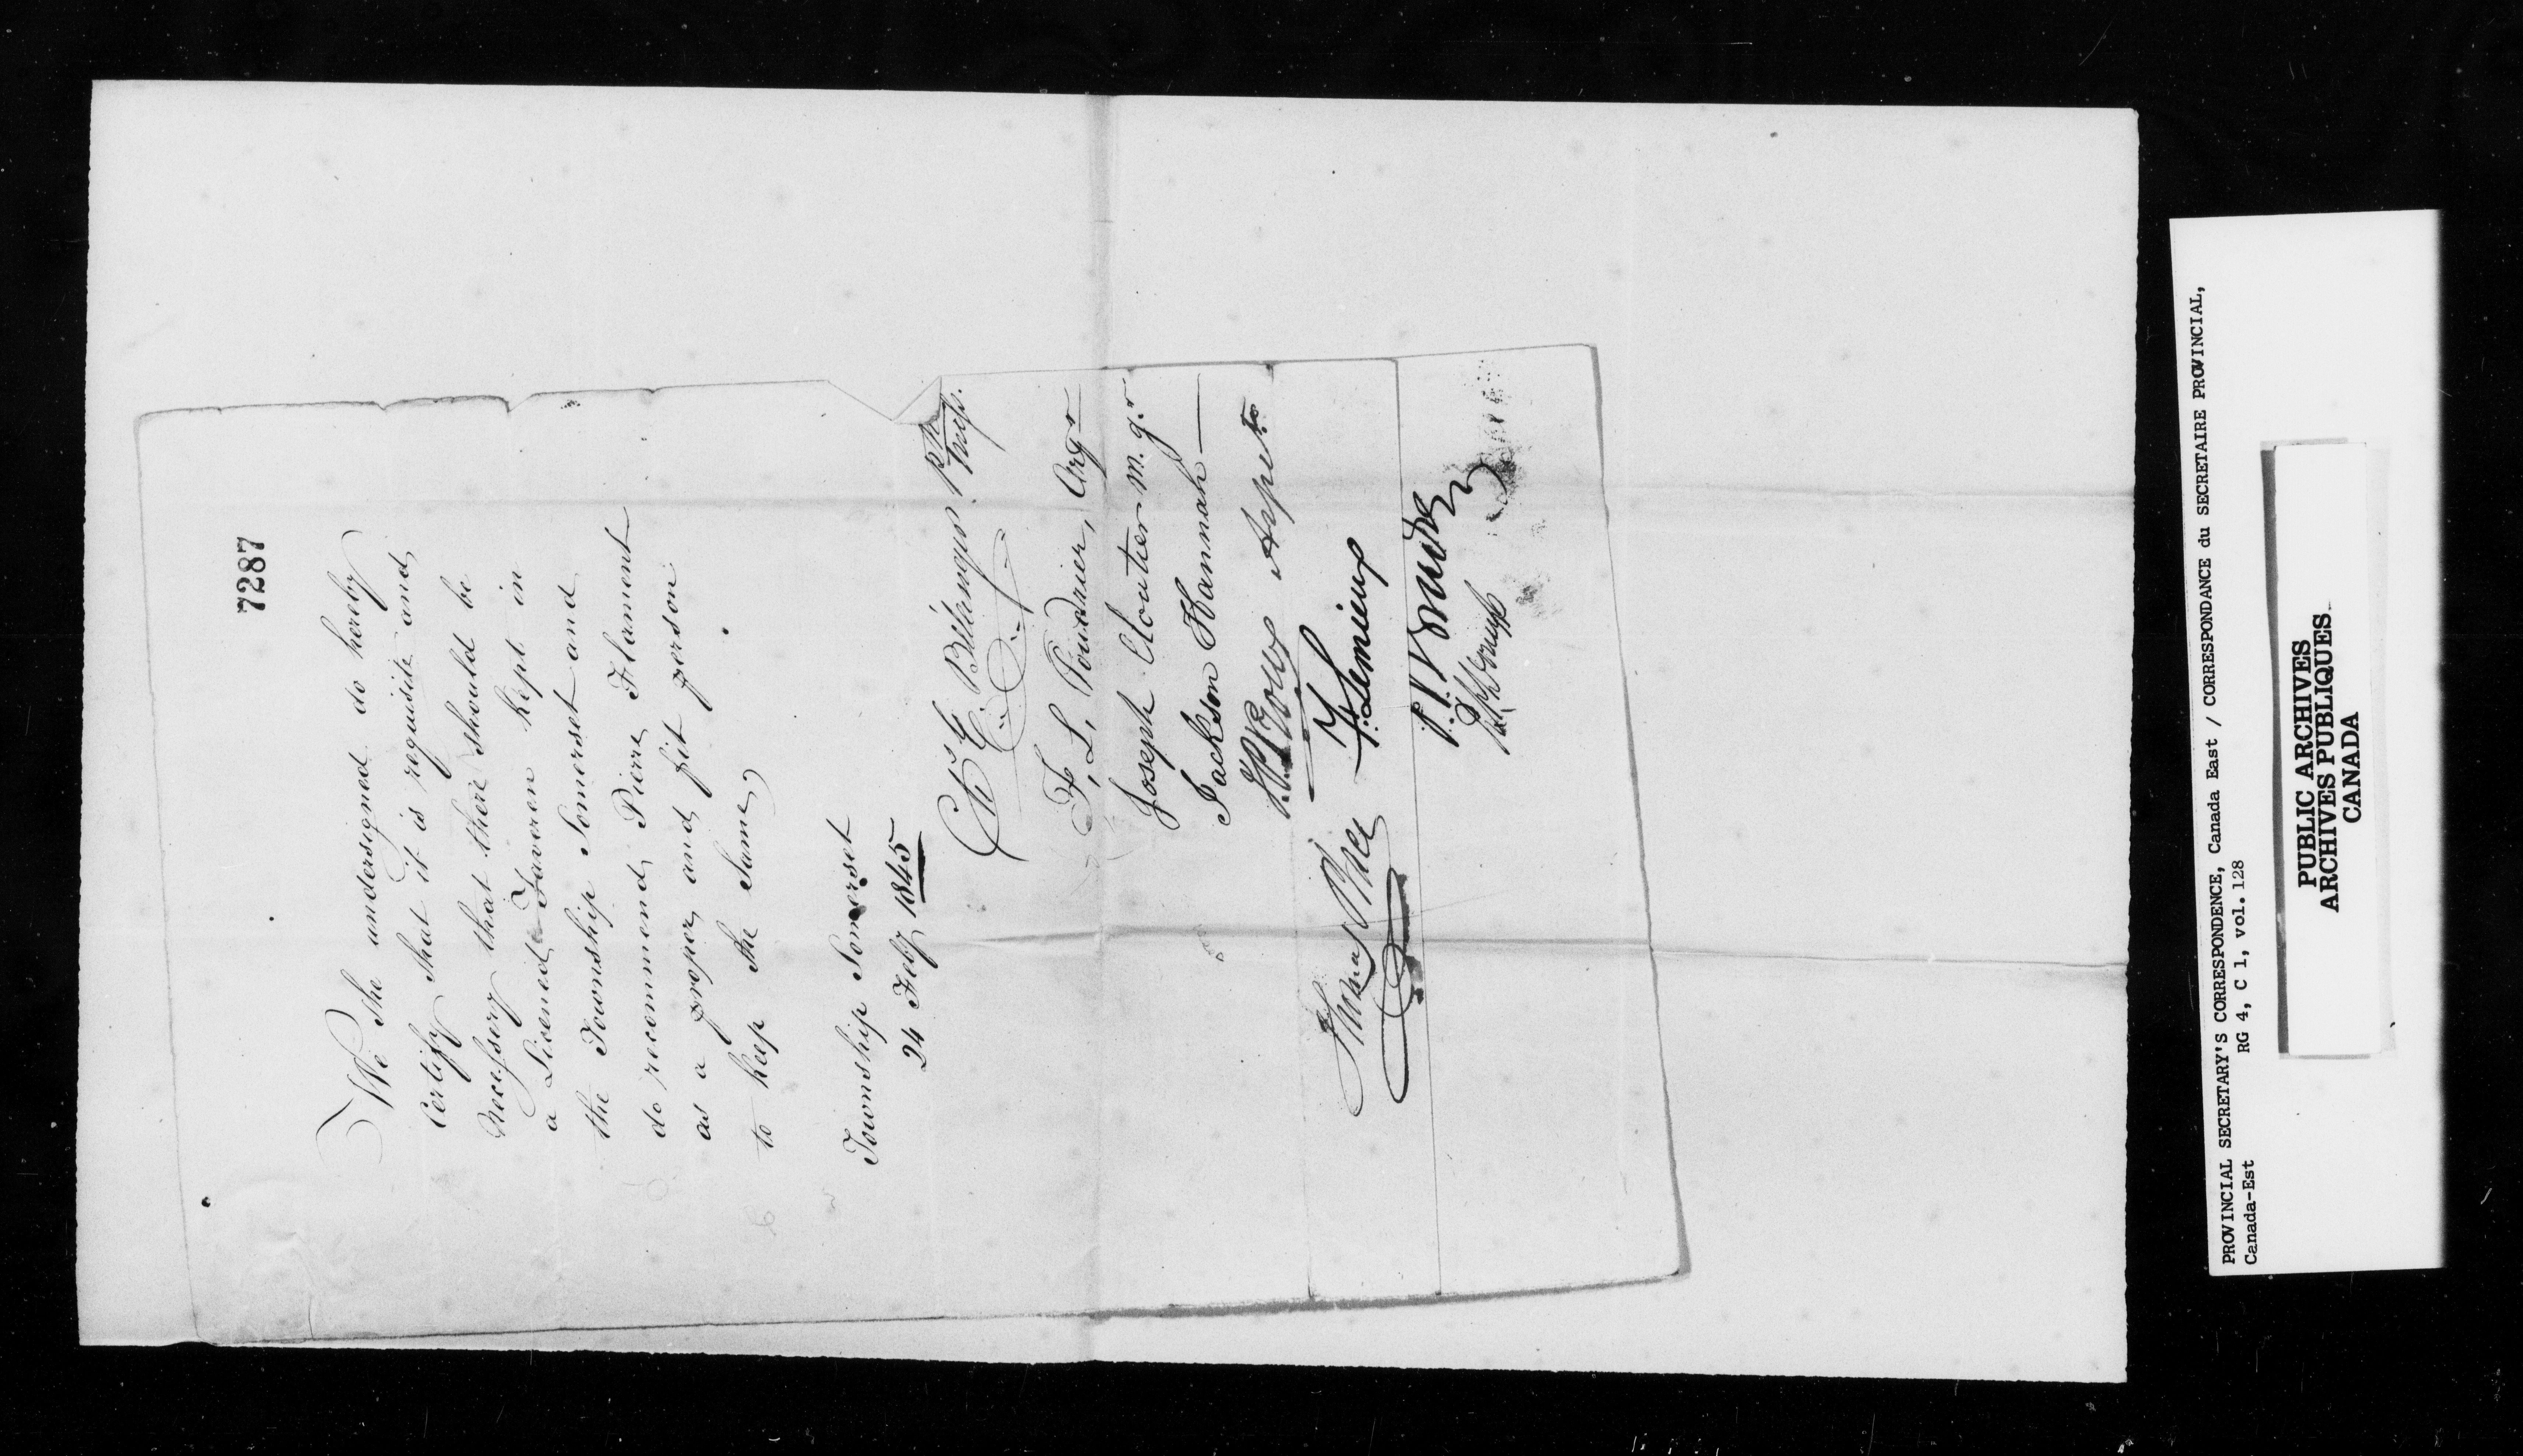 7287
We the undersigned do hereby
Certify that it is requisite and
Necessery that there should be
a Licened Tavern kept in
the Township Somerset and
do recommend Pierre Flament
as a proper and fit person
to keep the Same
Township Somerset
24 Feby 1845
Chs E. Bélanger Ptr
Miss.
F, L, Poudrier, Arpr
Joseph Cloutier m. g.r
Jackson Hannah
Roux
F. Lemieux
Thomas
PROVINCIAL SECRETARY'S CORRESPONDENCE, Canada East / CORRESPONDANCE du SECRETAIRE PROVINCIAL,
Canada-Est RG 4, C 1, vol. 128
PUBLIC ARCHIVES
ARCHIVES PUBLIQUES
CANADA